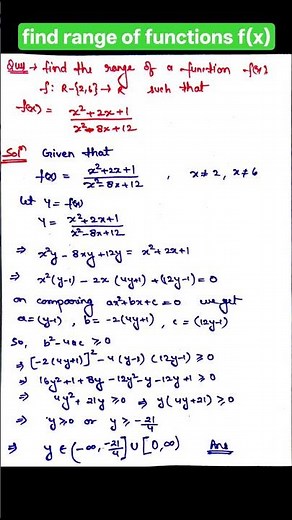 find range of functions f(x)
Que → find the range of a function f(x)
f: R-{2,6} → R such that
f(x) = x²+2x+1 / x²-8x+12
Solⁿ Given that
f(x) = x²+2x+1 / x²-8x+12 , x≠2, x≠6
let Y = f(x)
Y = x²+2x+1 / x²-8x+12
⇒ x²y - 8xy + 12y = x²+2x+1
⇒ x²(y-1) - 2x(4y+1) + (12y-1) = 0
on comparing ax²+bx+c = 0 we get
a = (y-1), b = -2(4y+1), c = (12y-1)
So, b²-4ac ≥ 0
⇒ [-2(4y+1)]² - 4(y-1)(12y-1) ≥ 0
⇒ 16y²+1+8y-12y²-y-12y+1 ≥ 0
⇒ 4y²+21y ≥ 0 ⇒ y(4y+21) ≥ 0
⇒ y ≥ 0 or y ≥ -21/4
⇒ y ∈ (-∞, -21/4] ∪ [0, ∞) Ans